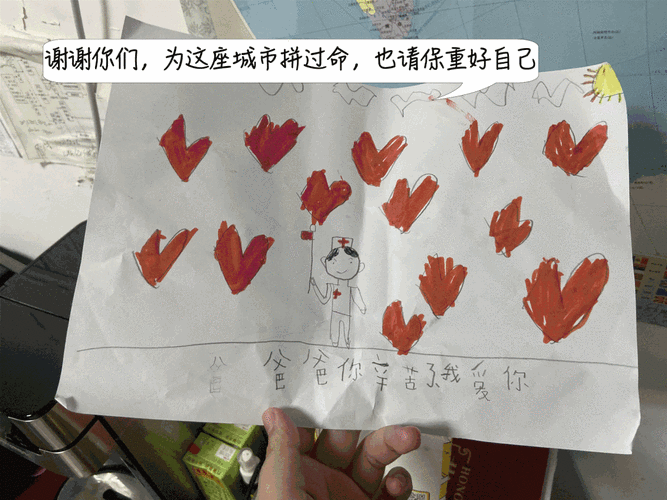 谢谢你们，为这座城市拼过命，也请保重好自己
爸爸你辛苦了我爱你
HONG